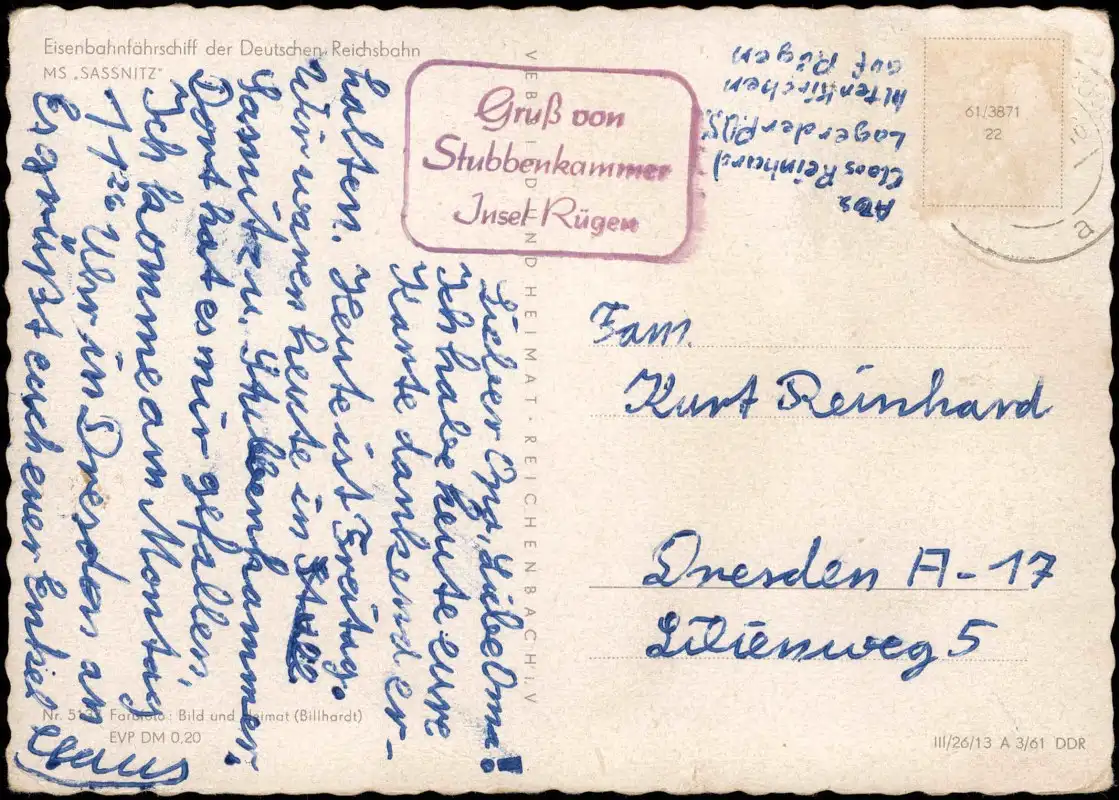 Eisenbahnfährschiff der Deutschen Reichsbahn
MS „SASSNITZ"
Gruß von
Stubbenkammer
Insel Rügen
Abs.
Claos Reinhard
Lager der
Altenkirchen
auf Rügen
61/3871
22
a
Lieber Opi, Liebe Oma!
Ich habe heute eure
Karte dankend er-
halten. Heute ist Freitag.
Wir waren heute in
Sassnitz u. Stubbenkammer,
Dort hat es mir gefallen,
Ich komme am Montag
11 26 Uhr in Dresden an
Es grüßt euch euer Enkel
Claus
VEB BILD UND HEIMAT · REICHENBACH i. V
Fam.
Kurt Reinhard
Dresden A-17
Lilienweg 5
Farbfoto: Bild und Heimat (Billhardt)
EVP DM 0,20
III/26/13 A 3/61 DDR